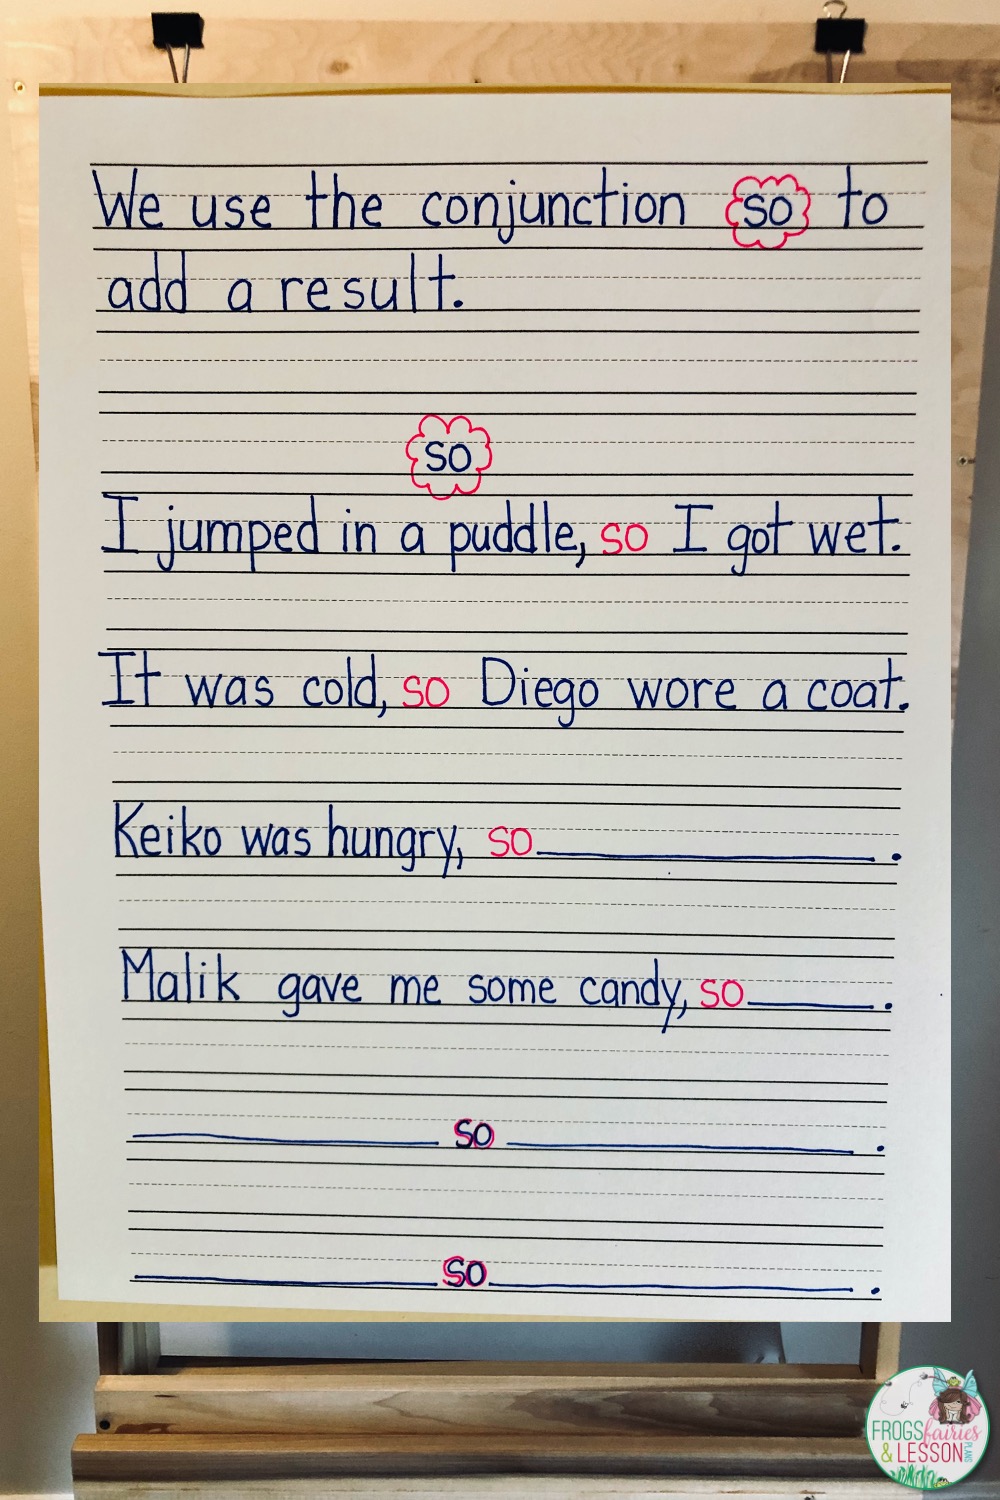 We use the conjunction so to
add a result.
so
I jumped in a puddle, so I got wet.
It was cold, so Diego wore a coat.
Keiko was hungry, so____________.
Malik gave me some candy, so_____.
____________ so ____________.
____________so____________.
FROGS fairies
& LESSON PLANS